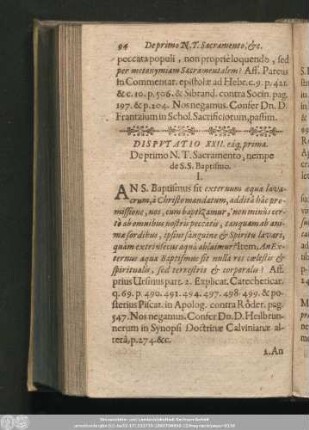 94 De primo N.T. Sacramento, &c.
peccata populi, non propriè loquendo, sed
per metonymiam Sacramentalem? Aff. Pareus
in Commentar. epistolæ ad Hebr. c. 9. p. 421.
& c. 10. p. 506. & Sibrand. contra Socin. pag.
197. & p. 204. Nos negamus. Confer Dn. D.
Frantzium in Schol. Sacrificiorum, passim.
DISPVTATIO XXII. eáq; prima.
De primo N. T. Sacramento, nempe
de S.S. Baptismo.
I.
AN S. Baptismus sit externum aquæ lava-
crum, à Christo mandatum, addita hâc pro-
missione, nos, cum baptizamur, non minùs cer-
tò ab omnibus nostris peccatis, tanquam ab ani-
mæ sordibus, ipsius sanguine & Spiritu lavari,
quàm extrinsecus aquâ abluimur? Item, An Ex-
ternus aquæ Baptismus sit nulla res cœlestis &
spiritualis, sed terrestris & corporalis? Aff.
prius Ursinus part. 2. Explicat. Catecheticar.
q. 69. p. 490. 491. 494. 497. 498. 499. & po-
sterius Piscat. in Apolog. contra Röder. pag.
547. Nos negamus. Confer Dn. D. Heilbrun-
nerum in Synopsi Doctrinæ Calvinianæ al-
terâ, p. 274. &c.
2. An